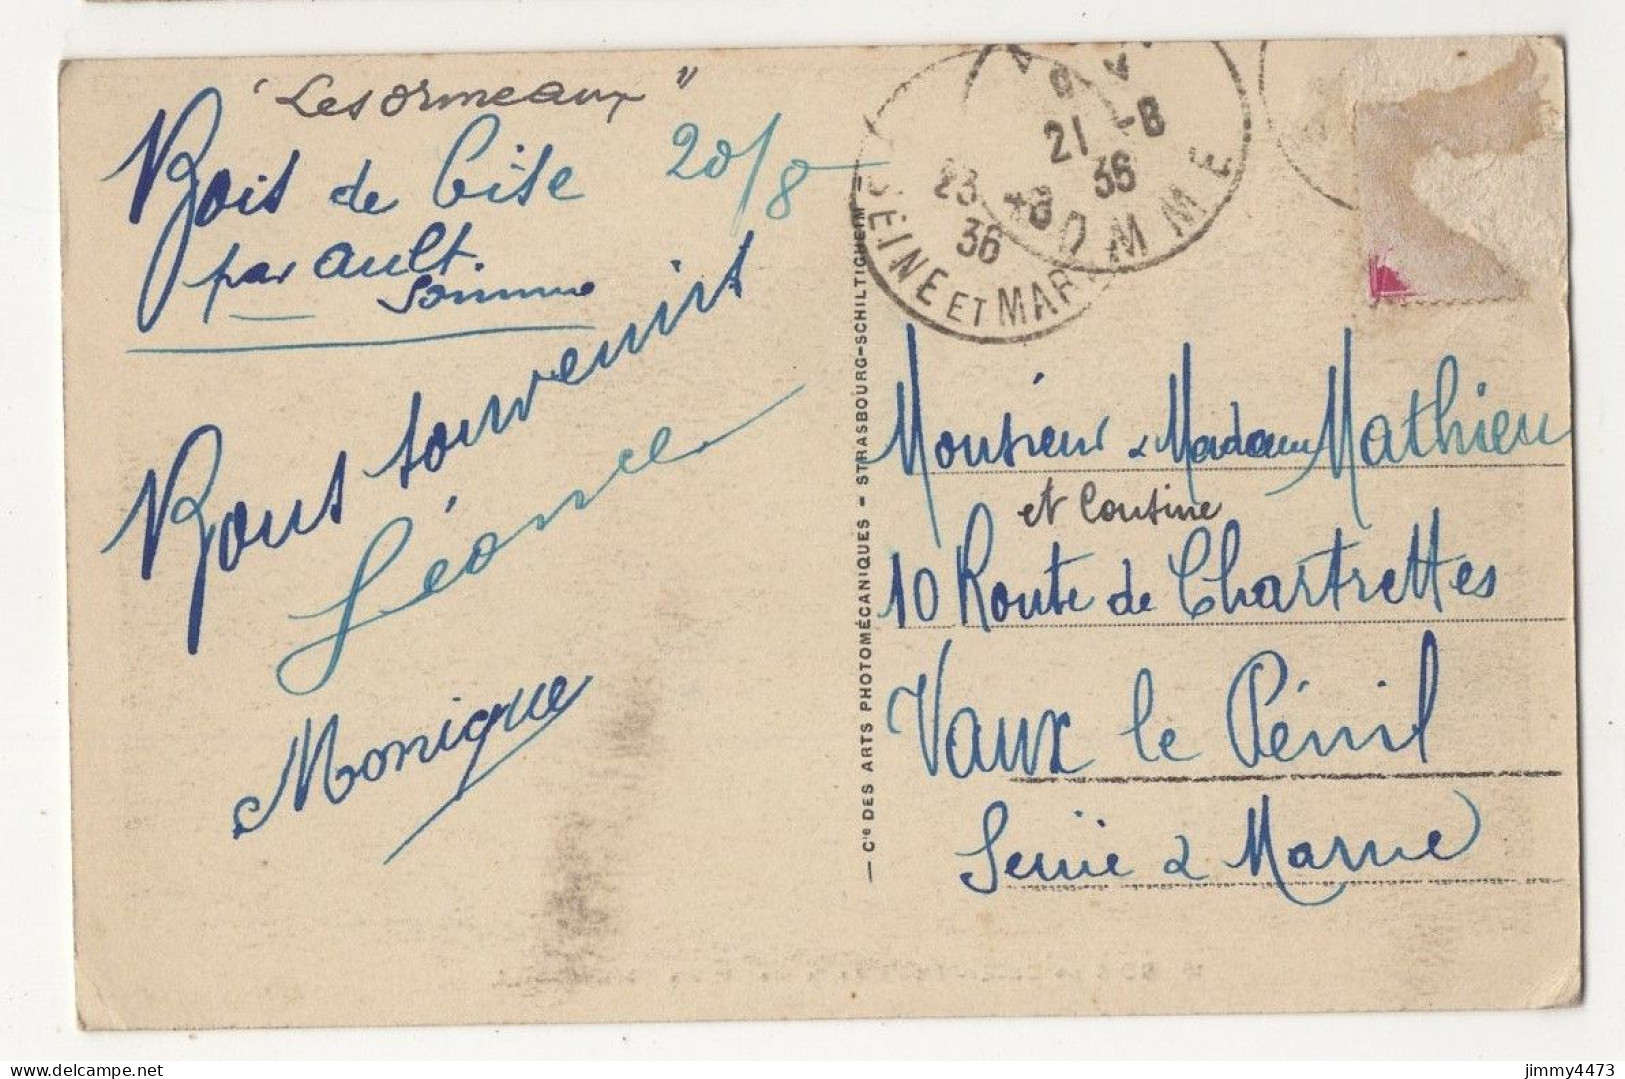 "Les ormeaux"
Bois de Cise 20/8
par Ault.
Somme
Bons souvenirs
Léonce
Monique
21 -8
36
SOMME
23 -8
36
SEINE ET MAR
— Cie DES ARTS PHOTOMÉCANIQUES - STRASBOURG-SCHILTIGHEIM —
Monsieur & Madame Mathieu
et Cousine
10 Route de Chartrettes
Vaux le Pénil
Seine & Marne
jimmy4473